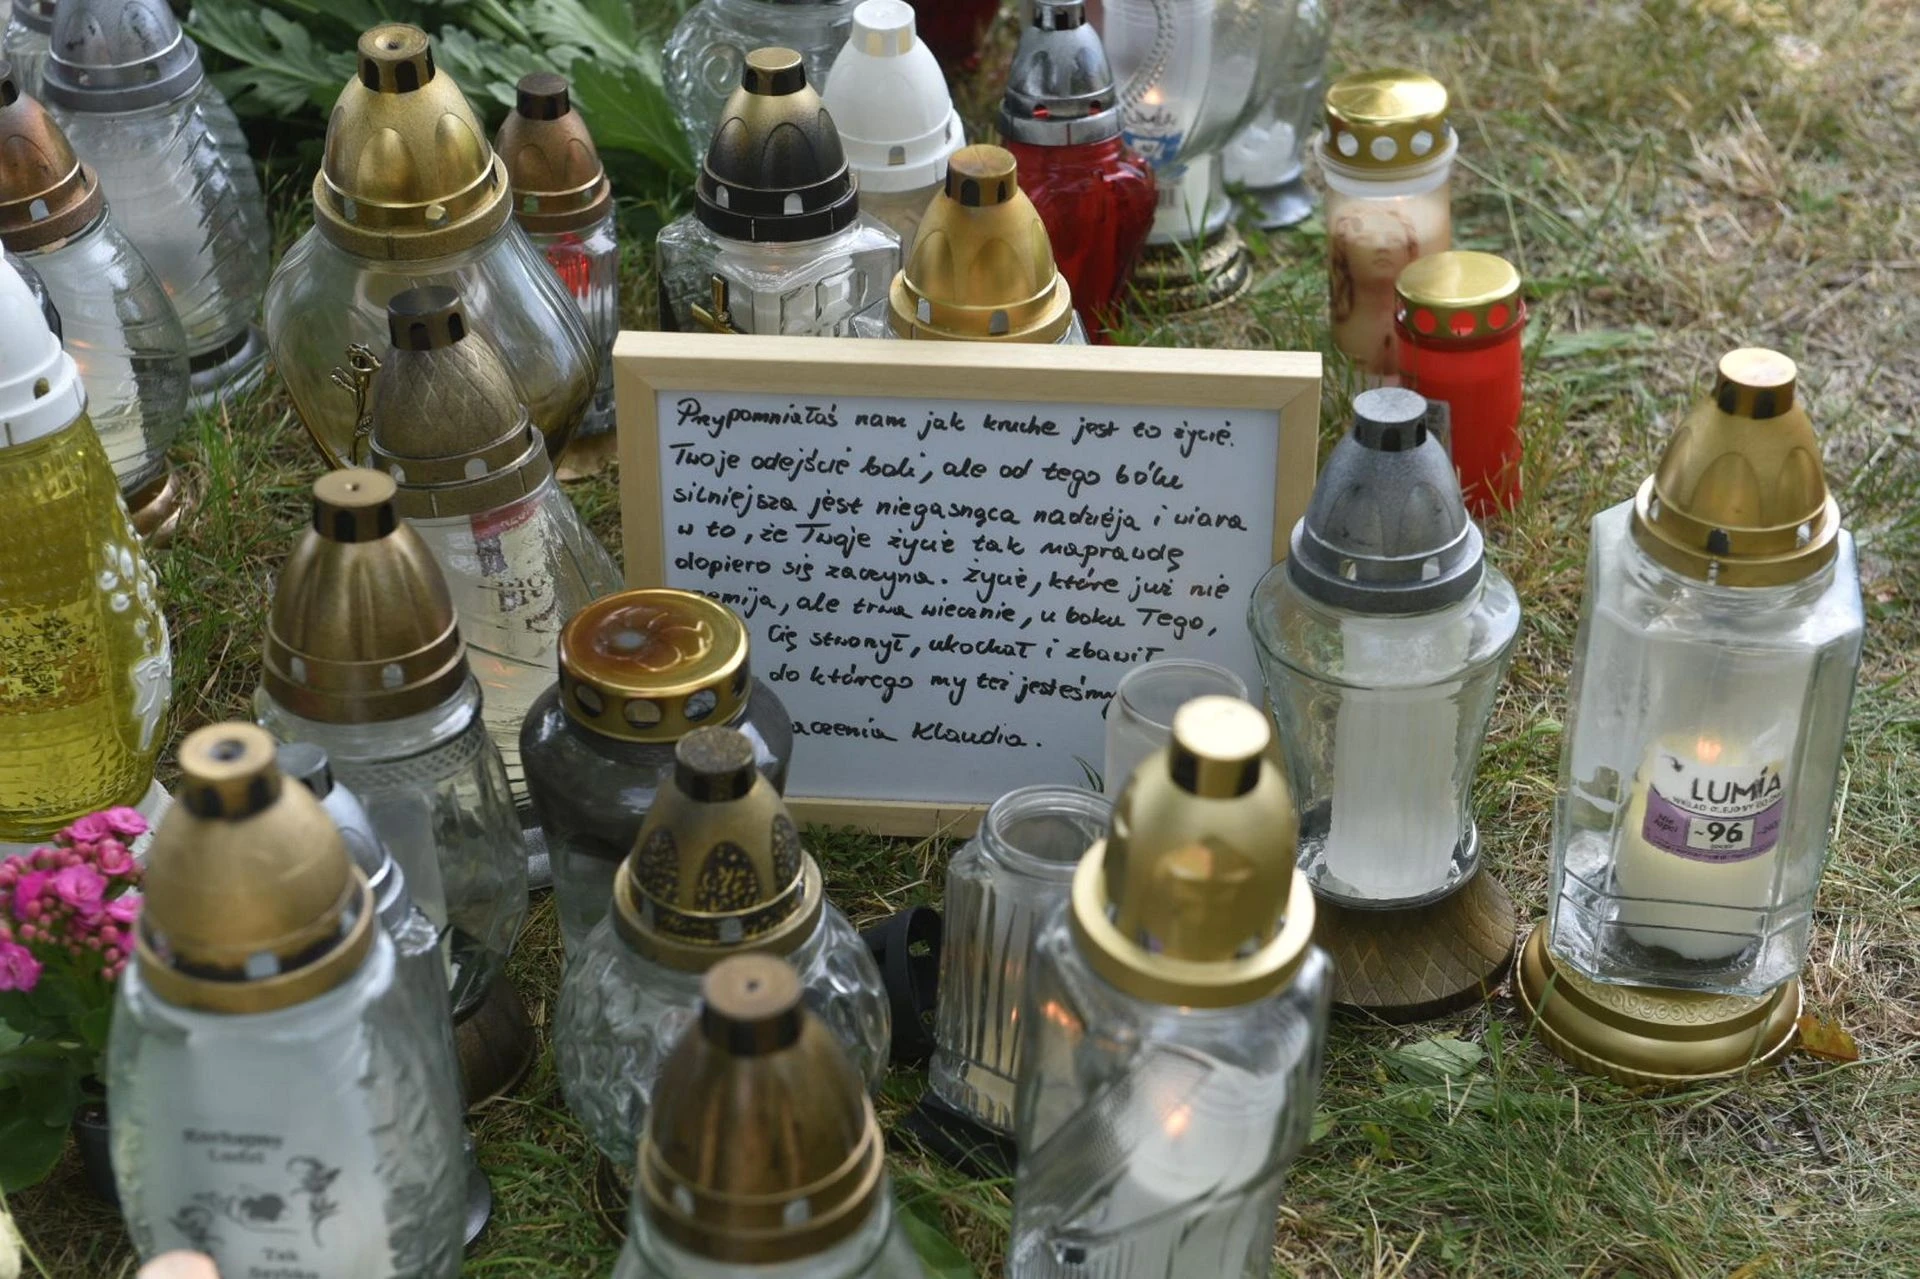 Przypomniałaś nam jak kruche jest to życie.
Twoje odejście boli, ale od tego bólu
silniejsza jest niegasnąca nadzieja i wiara
w to, że Twoje życie tak naprawdę
dopiero się zaczyna. Życie, które już nie
ale trwa wiecznie, u boku Tego,
Cię stworzył, ukochał i zbawił
do którego my też jesteśmy
Klaudia.
LUMIA
WKŁAD OLEJOWY
~96
Kochamy
Ludzi
Tak
Szybko